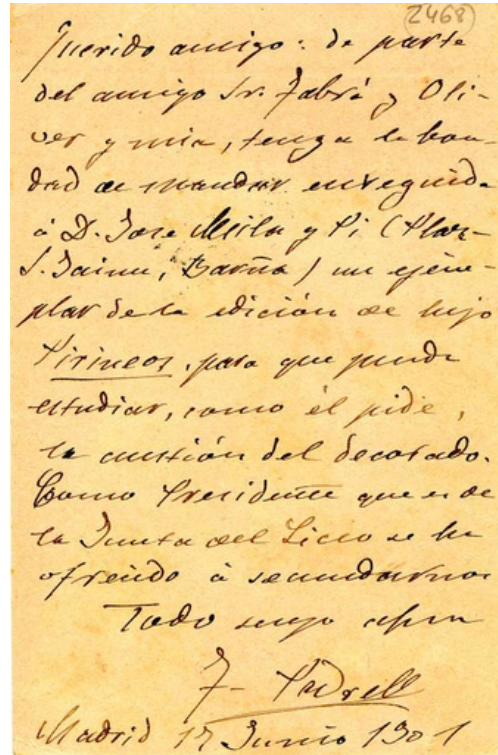 2468
Querido amigo: de parte
del amigo Sr. Fabrá y Oli-
ver y mia, tenga la bon-
dad de mandar enseguida
á D. José Milá y Pi (Plaza
S. Jaime, Barña) un ejem-
plar de la edición de lujo
Pirineos, para que pueda
estudiar, como él pide,
la cuestión del decorado.
Como Presidente que es de
la Junta del Liceo se ha
ofrecido á secundarnos
Todo suyo affmo
F. Pedrell
Madrid 17 Junio 1901